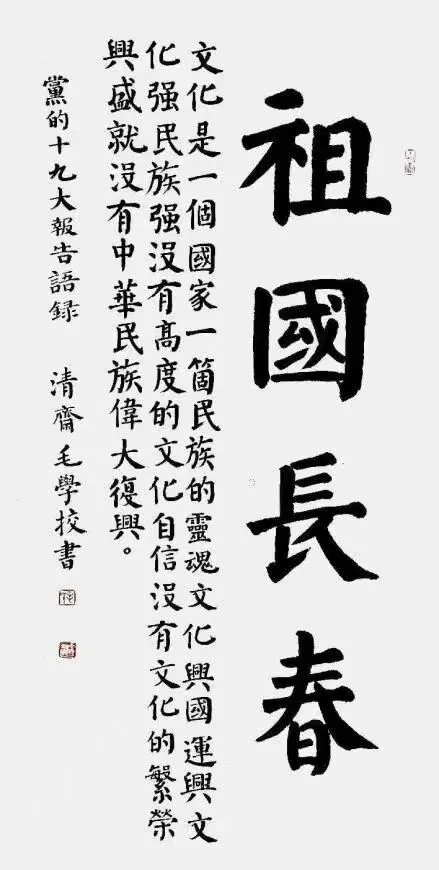 祖國長春
文化是一個國家一箇民族的靈魂文化興國運興文
化强民族强沒有高度的文化自信沒有文化的繁榮
興盛就沒有中華民族偉大復興。
黨的十九大報告語録 清齋毛學挍書